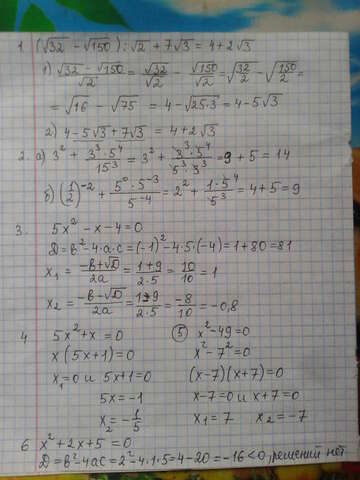 1. (√32 - √150) : √2 + 7√3 = 4 + 2√3
1) (√32 - √150)/√2 = √32/√2 - √150/√2 = √(32/2) - √(150/2) =
= √16 - √75 = 4 - √(25·3) = 4 - 5√3
2) 4 - 5√3 + 7√3 = 4 + 2√3
2. а) 3² + (3³·5⁴)/15³ = 3² + (3³·5⁴)/(5³·3³) = 9 + 5 = 14
б) (1/2)⁻² + (5⁰·5⁻³)/5⁻⁴ = 2² + (1·5⁴)/5³ = 4 + 5 = 9
3. 5x² - x - 4 = 0
D = b² - 4·a·c = (-1)² - 4·5·(-4) = 1 + 80 = 81
x₁ = (-b + √D)/2a = (1 + 9)/(2·5) = 10/10 = 1
x₂ = (-b - √D)/2a = (1 - 9)/(2·5) = -8/10 = -0,8
4 5x² + x = 0 (5) x² - 49 = 0
x(5x + 1) = 0 x² - 7² = 0
x₁ = 0 и 5x + 1 = 0 (x - 7)(x + 7) = 0
5x = -1 x - 7 = 0 и x + 7 = 0
x₂ = -1/5 x₁ = 7 x₂ = -7
6 x² + 2x + 5 = 0
D = b² - 4ac = 2² - 4·1·5 = 4 - 20 = -16 < 0, решений нет